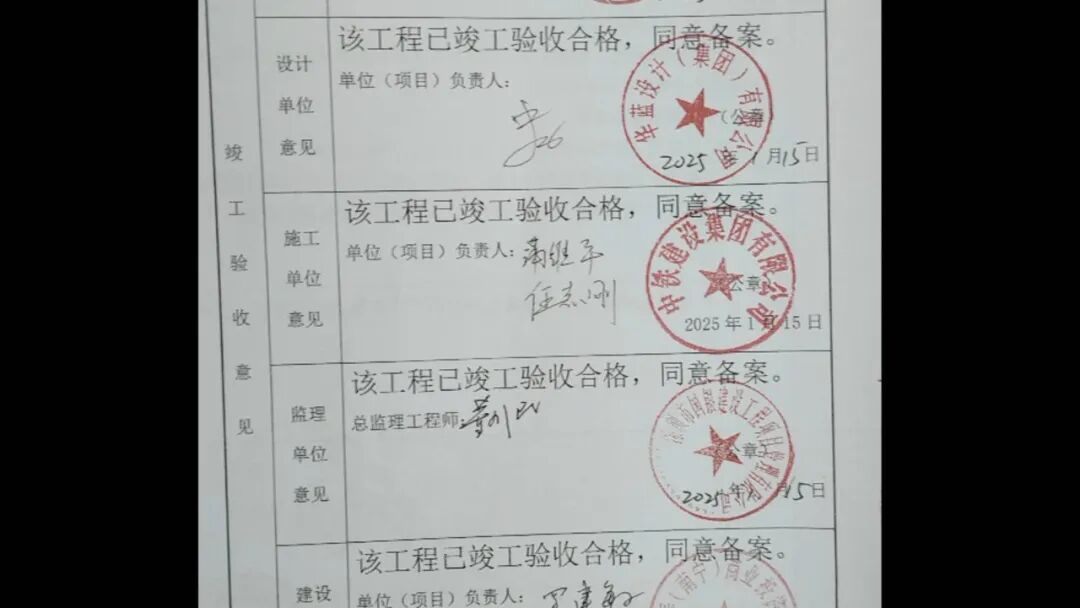 竣工验收意见
设计单位意见
该工程已竣工验收合格，同意备案。
单位（项目）负责人：
华蓝设计（集团）有限公司
（公章）
2025年1月15日
施工单位意见
该工程已竣工验收合格，同意备案。
单位（项目）负责人：
任志刚
中铁建设集团有限公司
（公章）
2025年1月15日
监理单位意见
该工程已竣工验收合格，同意备案。
总监理工程师：
（公章）
2025年1月15日
建设
该工程已竣工验收合格，同意备案。
单位（项目）负责人：
（南宁）商业投资